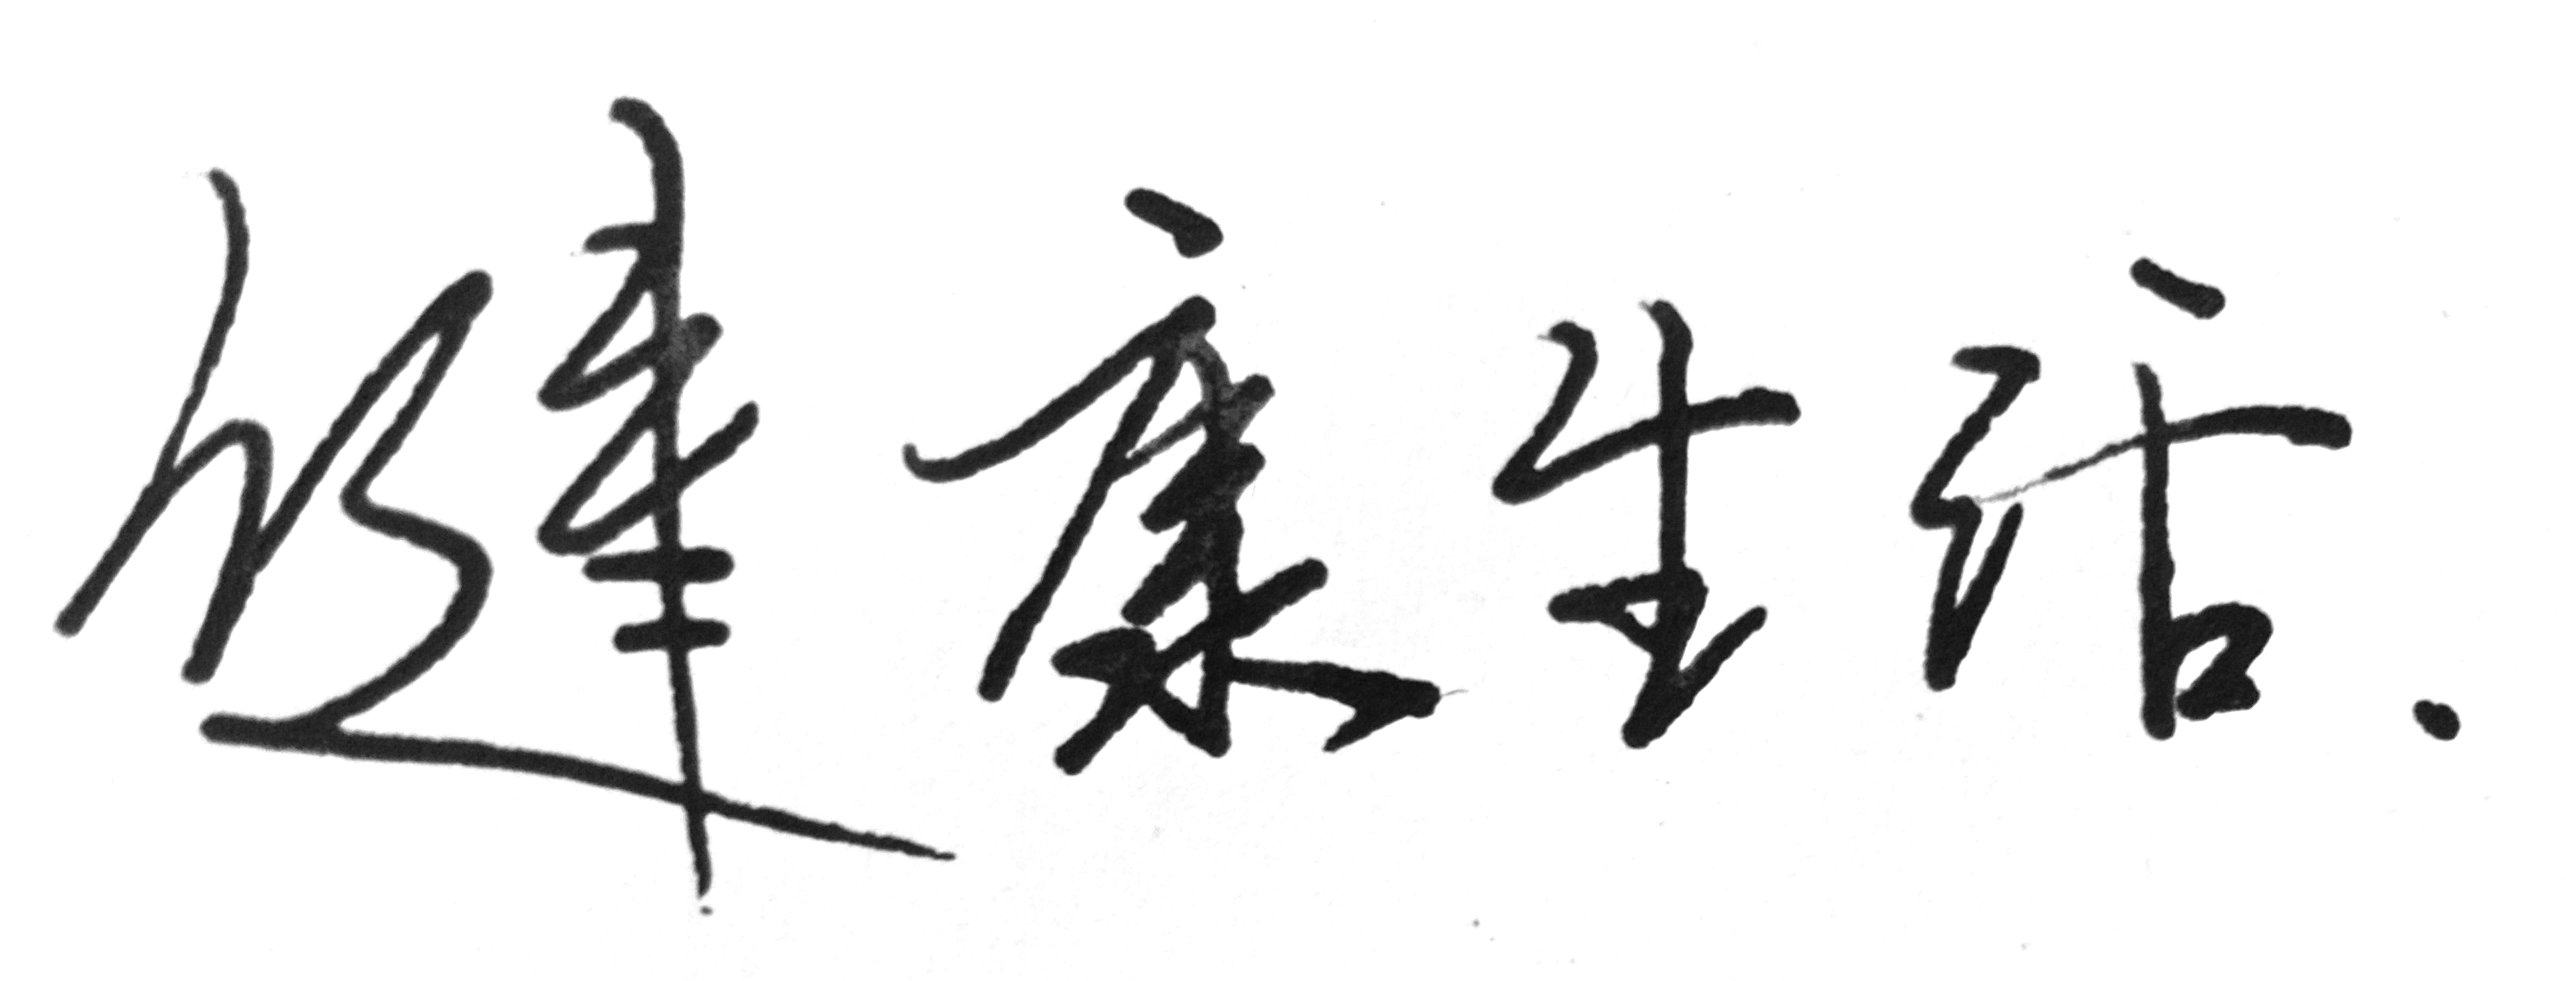 健康生活.